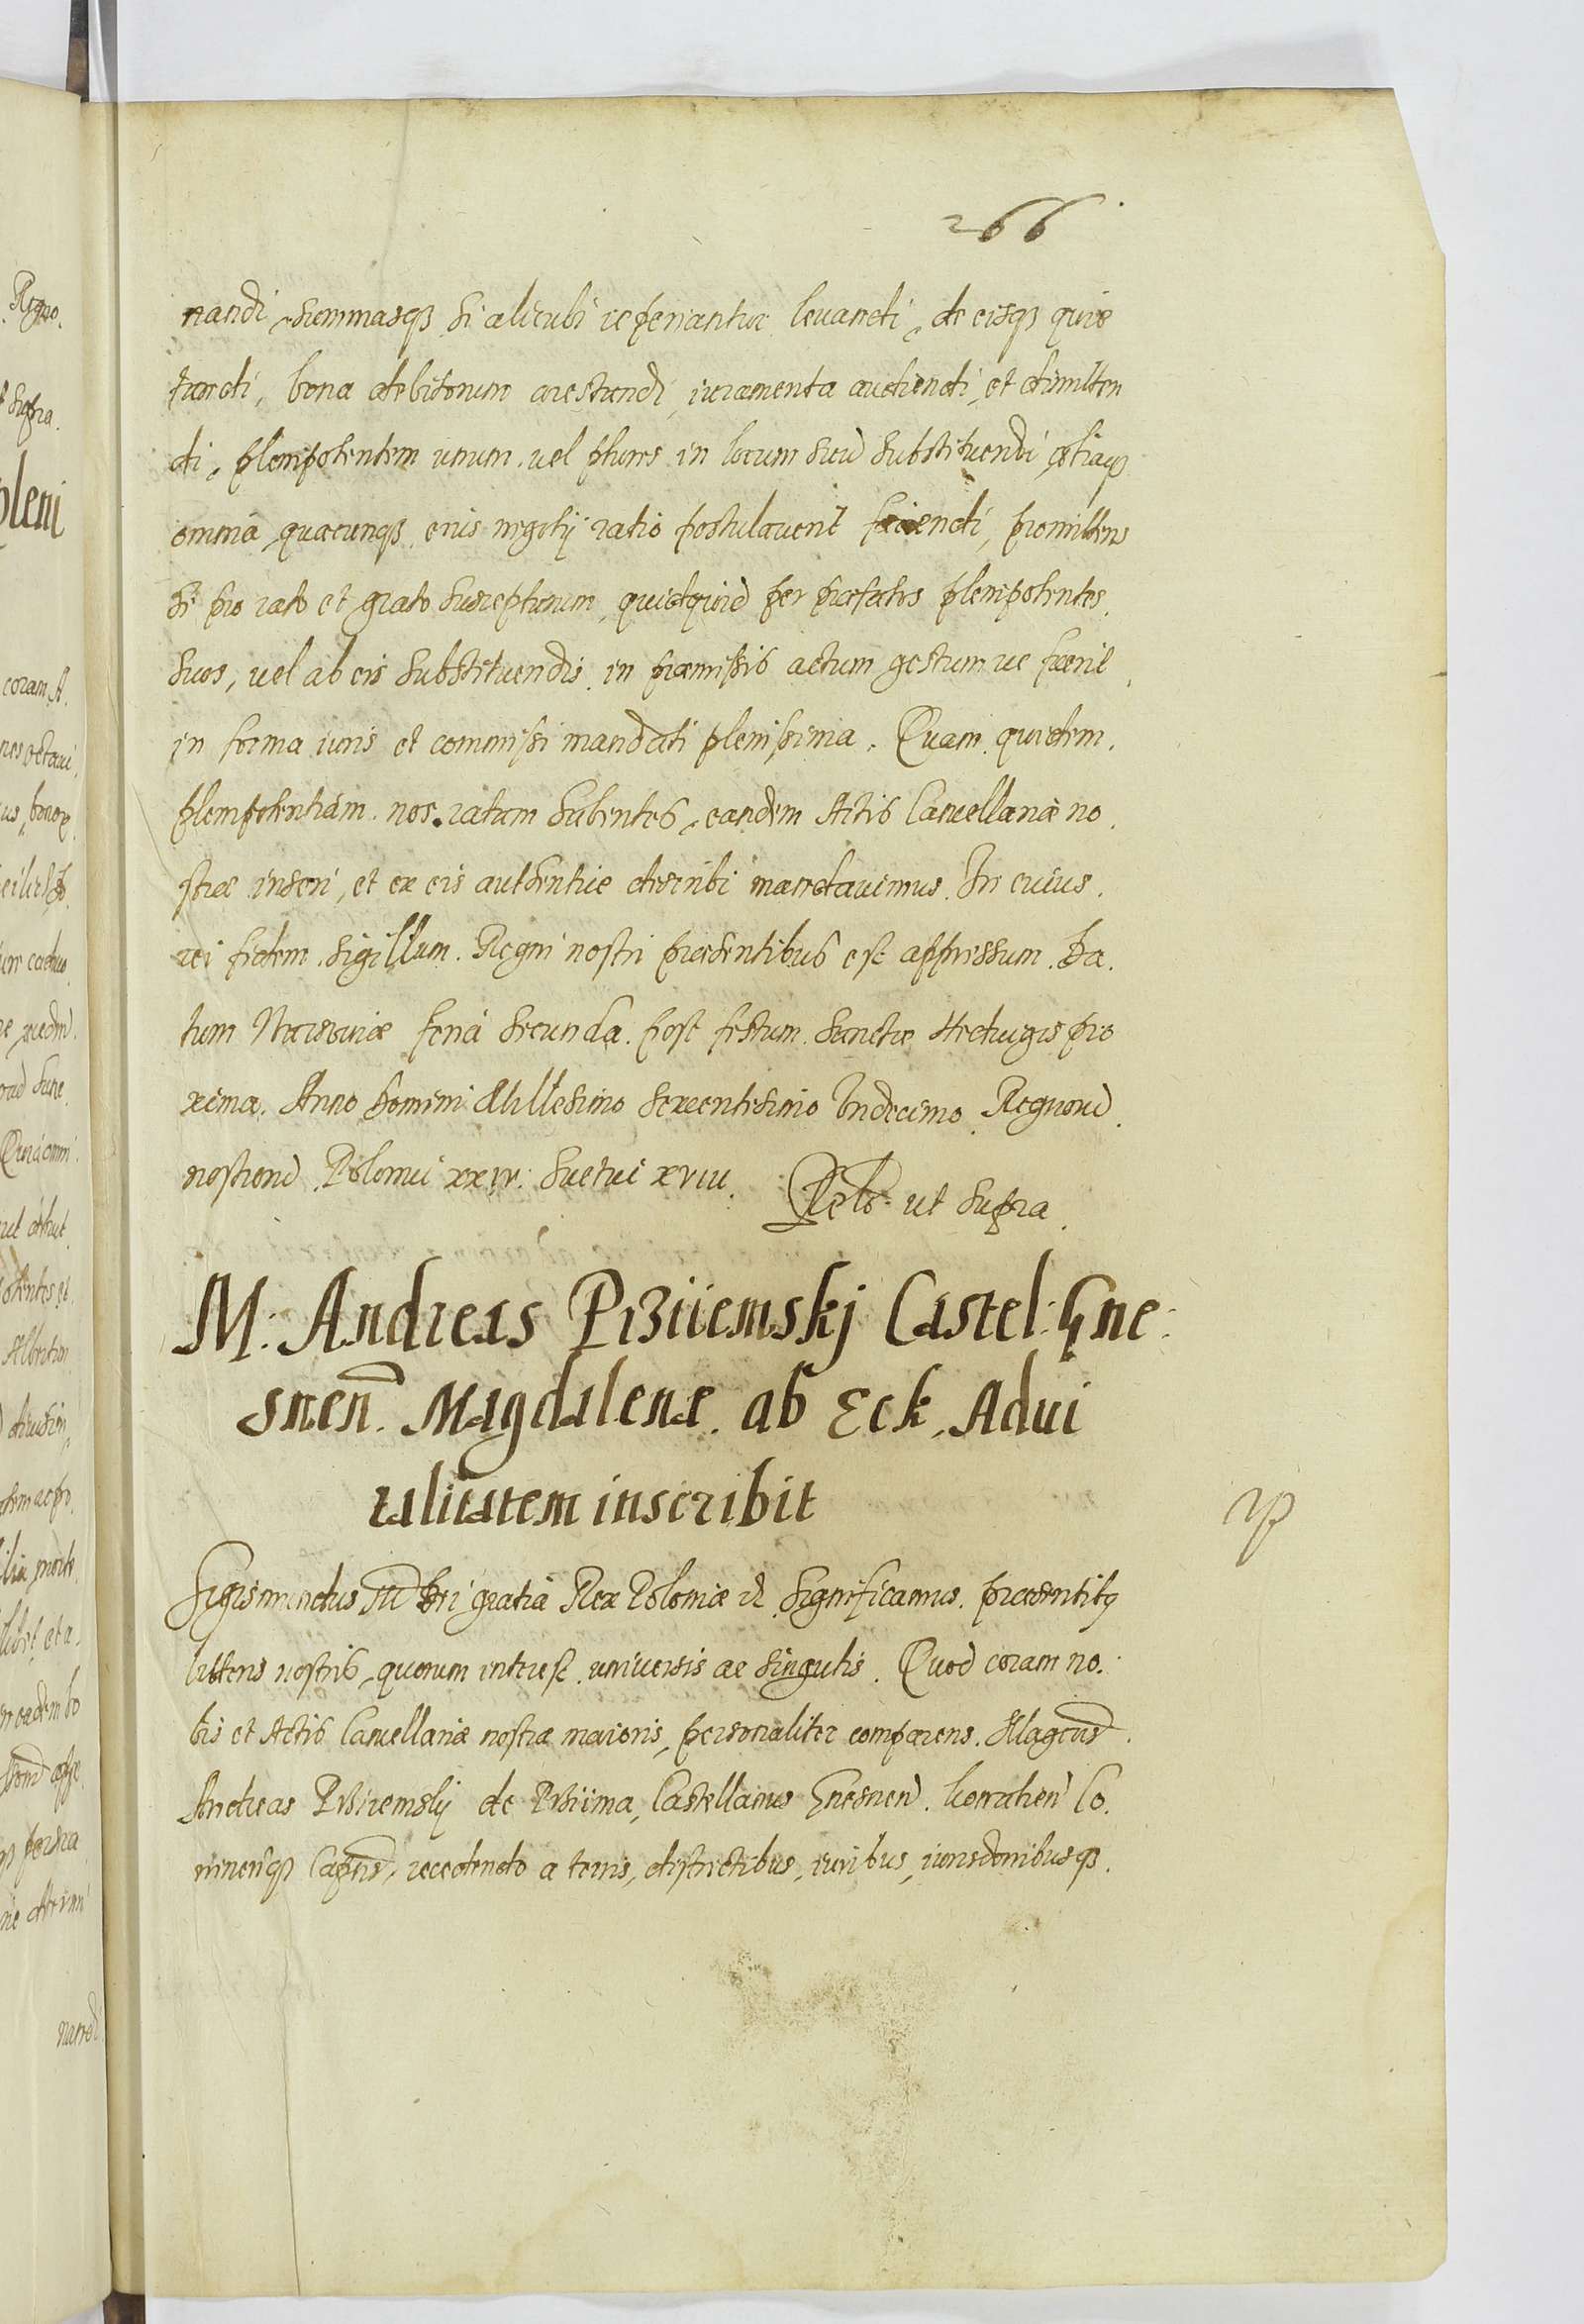 266
nandi, summasqȝ si alicubi reperiantur levandi, de eisqȝ quie
tandi, bona debitorum arestandi, iuramenta audiendi, et dimitten
di, plenipotentem unum vel plures in locum suũ substituendi, aliaqȝ
omnia, quæcunqȝ eius negotij ratio postulaverit faciendi, promittens
se pro rato et grato suscepturum, quidquid per præfatos plenipotentes
suos, vel ab eis substituendis in præmissis actum gestum ve fuerit
in forma iuris et commissi mandati plenissima. Quam quidem
plenipotentiam nos ratam habentes, eandem Actis Cancellariæ no
stræ inseri, et ex eis authentice describi mandavimus. In cuius
rei fidem sigillum Regni nostri præsentibus est appressum. Da
tum Varsaviæ feria secunda post festum Sanctæ Hedvigis pro
xima. Anno Domini Millesimo Sexcentesimo Undecimo. Regnorũ
nostrorũ Poloniæ xxiv. Suetiæ xviii. Relo: ut supra.
M: Andreas Przÿiemskj Castel: Gne:
snen̄. Magdalenæ ab Eck, Advi
talitatem inscribit
Sigismundus III Dei gratia Rex Poloniæ &. Significamus præsentibȝ
litteris nostris, quorum interest universis ac singulis. Quod coram no:
bis et Actis Cancellariæ nostræ maioris, personaliter comparens Magcus
Andreas Przÿiemskj de Przÿima, Castellanus Gnesnen̄ Co
ninen̄qȝ Captus, recedendo a terris, districtibus, iuribus, iurisdonibusqȝ